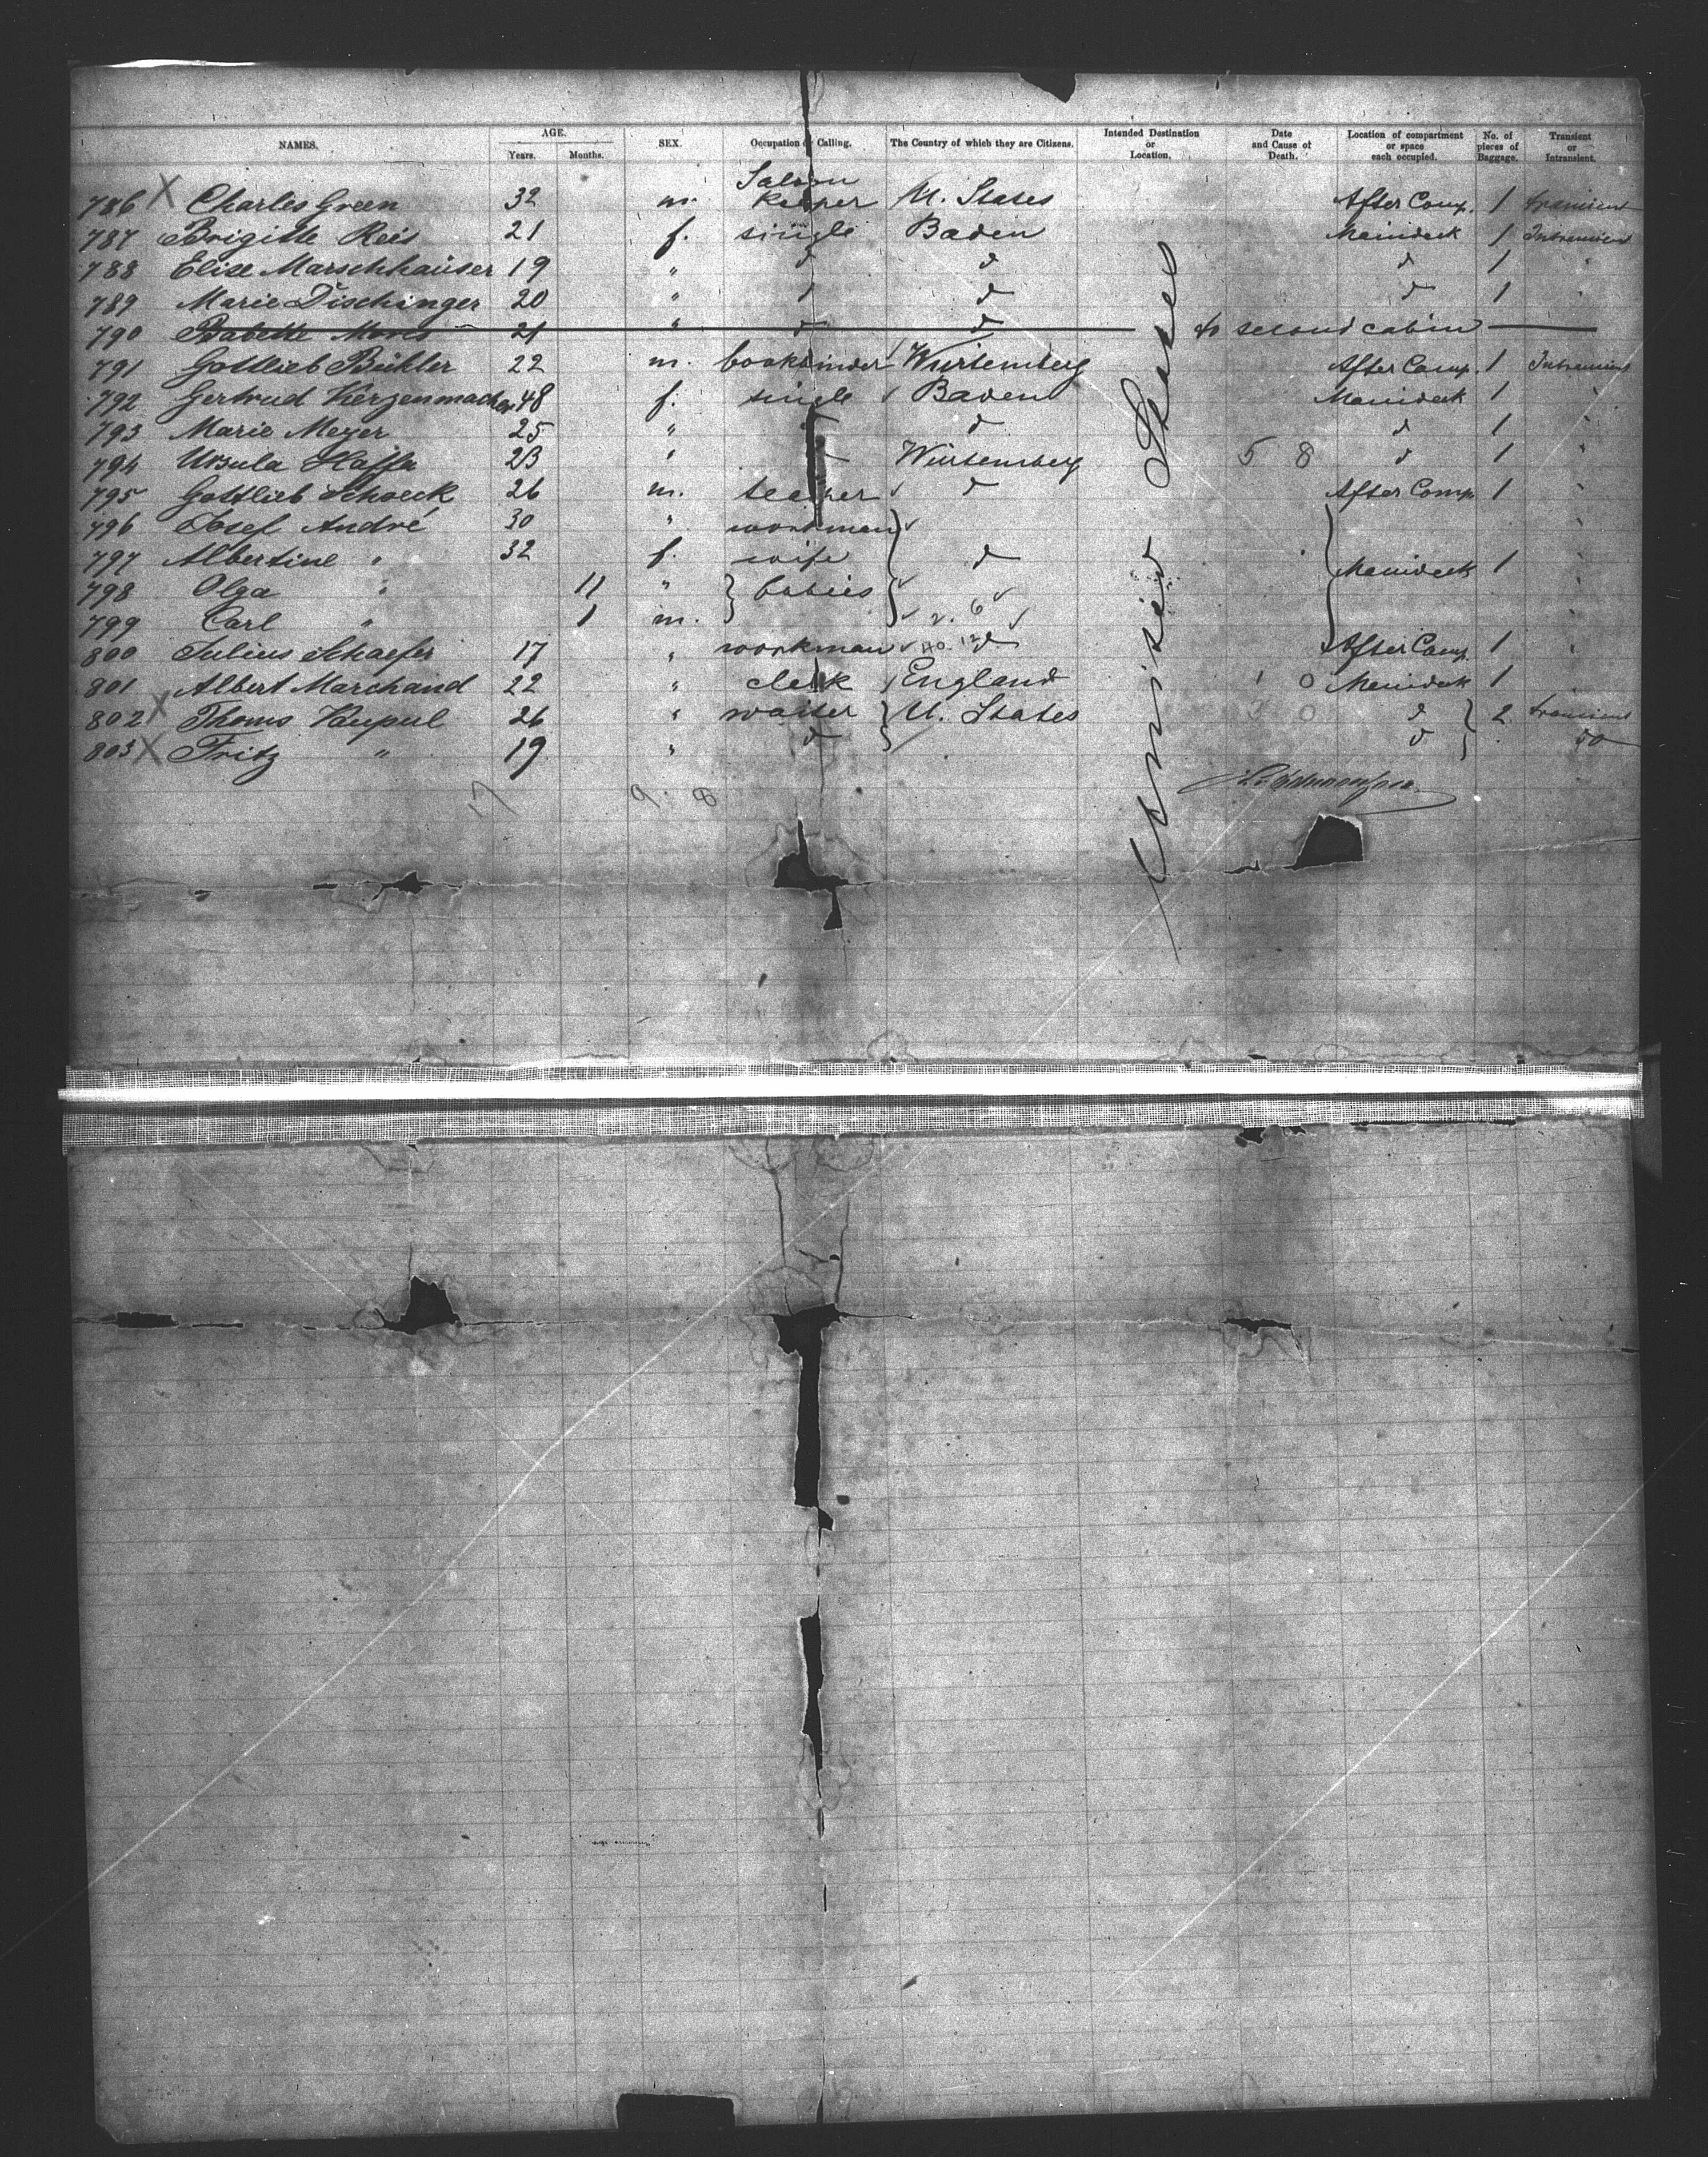 NAMES. AGE. Years. Months. SEX. Occupation or Calling. The Country of which they are Citizens. Intended Destination or Location. Date and Cause of Death. Location of compartment or space each occupied. No. of pieces of Baggage. Transient or Intransient.
786 X Charles Green 32 m. Saloon Keeper U. States After Comp. 1 transient
787 Brigitte Reis 21 f. single Baden Maindeck 1 Intransient
788 Elise Marschhaüser 19 " d d d 1 "
789 Marie Dischinger 20 " d d d 1 "
790 Babette 21 " d d to second cabin
791 Gottlieb Bühler 22 m. bookbinder Würtemberg After Comp. 1 Intransient
792 Gertrud Kerzenmacher 48 f. single Baden Maindeck 1 "
793 Marie Meyer 25 " d d 1 "
794 Ursula Haffa 23 " Würtemberg 5 8 d 1 "
795 Gottlieb Schoeck 26 m. teacher d After Comp 1 "
796 Josef André 30 " workman "
797 Albertine " 32 f. wife d Maindeck 1 "
798 Olga " 11 " babies "
799 Carl " 1 m. "
800 Julius Schaefer 17 " workman d After Comp. 1 "
801 Albert Marchand 22 " clerk England 1 0 Maindeck 1
802 X Thoms 26 " waiter U. States 3 0 d 2 transient
803 X Fritz " 19 " d d do
United States
17 9 8